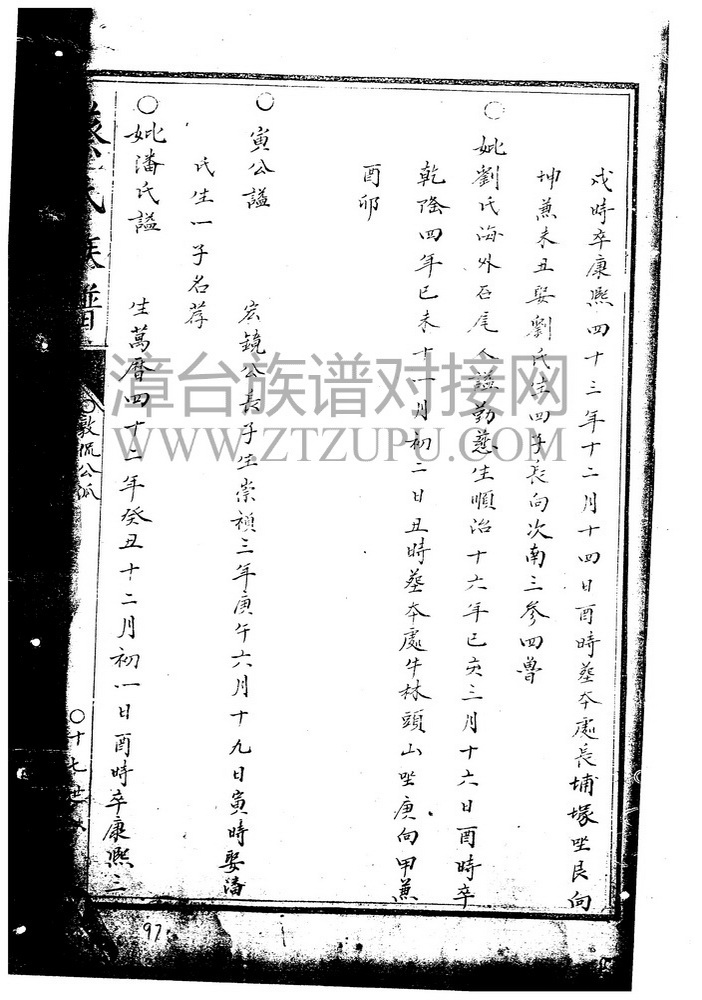 戍時卒康熙四十三年十二月十四日酉時塟本處長埔塚坐艮向
坤兼未丑娶劉氏生四子長向次南三參四魯
〇妣劉氏海外石尾人謚勤慈生順治十六年已亥三月十六日酉時卒
乾隆四年已未十一月初二日丑時塟本處牛林頭山坐庚向甲兼
酉卯
〇寅公謚 宏鏡公長子生崇禎三年庚午六月十九日寅時娶潘
氏生一子名荐
〇妣潘氏謚 生萬曆四十二年癸丑十二月初一日酉時卒康熙三
氏族譜
敦侃公派
〇十七世
97
漳台族谱对接网
WWW.ZTZUPU.COM